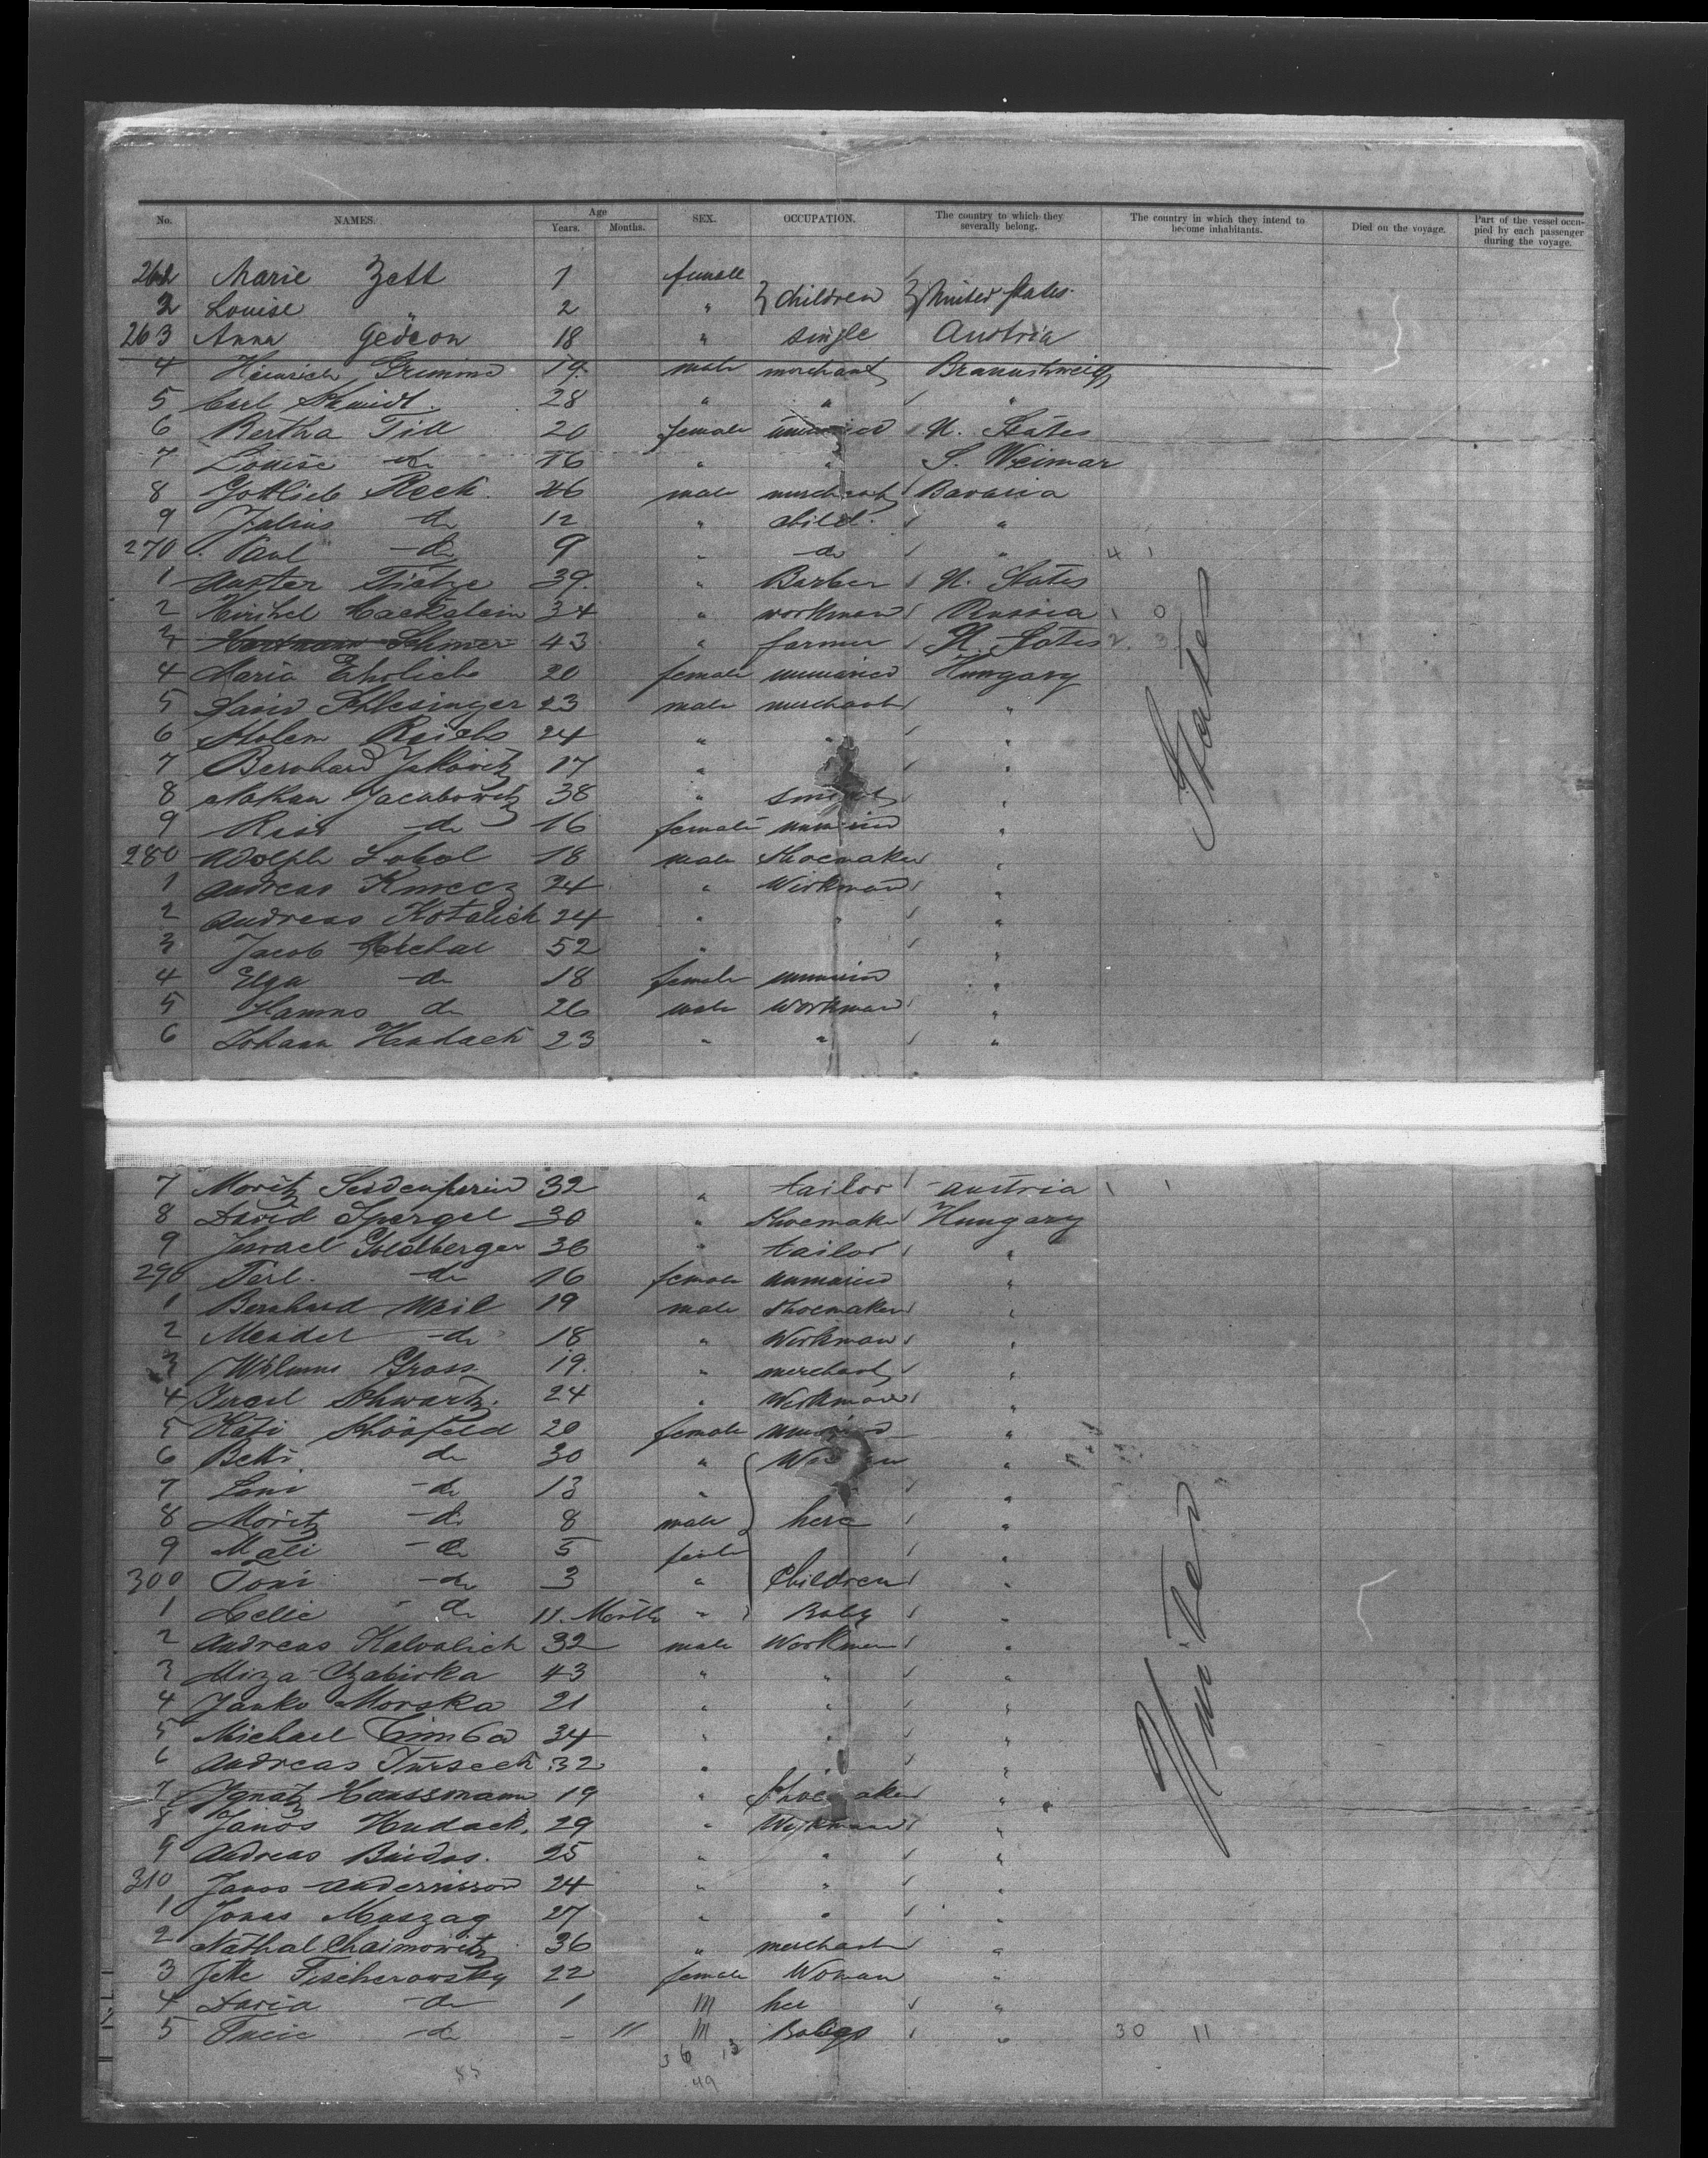 No. NAMES. Age Years. Months. SEX. OCCUPATION. The country to which they severally belong. The country in which they intend to become inhabitants. Died on the voyage. Part of the vessel occupied by each passenger during the voyage.
262 Marie Zett 1 female } children } United States.
2 Louise " 2 "
263 Anna Gedeon 18 " single Austria
4 Heinrich Grimme 19 male merchant Braunschweig
5 Carl Schmidt. 28 " " "
6 Bertha Till 20 female unmaried U. States
7 Louise do 16 " " S. Weimar
8 Gottlieb Reck. 46 male merchant Bavaria
9 Julius do 12 " child. "
270 Paul do 9 " do " 4 1
1 Tietze 39. " Barber U. States
2 Hirchel Hackstein 34 " workman Russia 1 0
3 Hartmann 43 " farmer U. States 2. 3
4 Maria Ehrlich 20 female unmaried Hungary
5 David Schlesinger 23 male merchant "
6 Reich 24 " "
7 Bernhard Jakowitz 17 " "
8 Nathan Jacubowitz 38 " "
9 Resi do 16 female unmaried "
280 Adolph 18 male Shoemaker "
1 Andreas 24 " Workman "
2 Andreas Kotalich 24 " " "
3 Jacob 52 " "
4 do 18 female unmaried "
5 Hanno do 26 male workman "
6 Johann Hudach 23 " " "
7 Moritz 32 " tailor Austria 1 1
8 David Spergel 30 " Shoemaker Hungary
9 Israel Goldberger 36 " tailor "
290 Perl. do 16 female unmaried "
1 Bernhard Weil 19 male Shoemaker "
2 Mendel do 18 " Workman "
3 Gross 19. " merchant "
4 Israel Schwartz. 24 " Workman "
5 Kati Schönfeld 20 female unmaried "
6 Betti do 30 " Woman "
7 Leni do 13 " "
8 Moritz do 8 male her "
9 Mali do 5 female "
300 Toni do 3 " Children "
1 Celie do 11. Month " Baby "
2 Andreas Kalvalich 32 male Workman "
3 Mirza Czabirka 43 " " "
4 Janko Morska 21 " " "
5 Michael Cimba 34 " " "
6 Andreas Tursech 32 " " "
7 Ignatz Haussmann 19 " Shoemaker "
8 Janos Hudack. 29 " Workman "
9 Andreas Buidos. 25 " " "
310 Janos 24 " " "
1 Jonas Muszag 27 " " "
2 Nathal Chaimowitz 36 " merchant "
3 Jette Fischerowsky 22 female Woman "
4 do 1 M her "
5 do - 11 M Babys " 30 11
36 13
49
85
United States